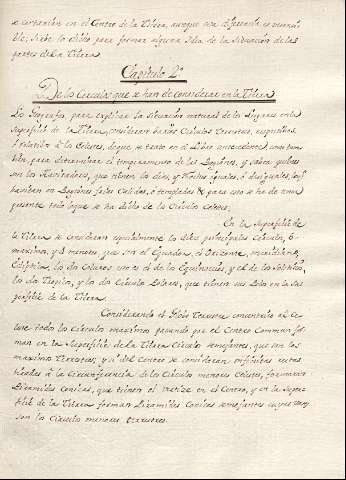 se cortarán en el Centro de la Tierra, aunque esta diferencia es insensi-
ble, Sirve lo dicho para formar alguna Idea de la Situación de las
partes de la Tierra
Capitulo 2º
De los Circulos que se han de considerar en la Tierra
Los Geografos, para explicar la Situación natural de los Lugares en la
Superficie de la Tierra, consideran varios Circulos Terrestres, respectivos
ô relativos â los Celestes, de que se trató en el Libro antecedente, como tam-
bien para determinar el temperamento de las Regiones, y saber quales
son los Habitadores, que tienen los dias, y Noches iguales, ô desiguales, ô q.
habitan en Regiones frias Calidas, ô templadas para esto se ha de tener
presente todo lo que se ha dicho de los Circulos Celestes.
En la Superficie de
la Tierra se consideran especialmente los diez principales Circulos, 6
maximos, y 4 menores que son el Equador, el Orizonte, meridiano,
Ecliptica, los dos Coluros esto es el de los Equinoccios, y el de los Solsticios,
los dos Tropicos, y los dos Circulos Polares, que tienen sus Polos en la Su-
perficie de la Tierra.
Considerando el Globo Terrestre, concentrico al Ce-
leste todos los Circulos maximos pasando por el Centro Comun for-
man en la Superficie de la Tierra Circulos semejantes, que son los
maximos Terrestres; y si del Centro se consideran infinitas rectas
tiradas â la Circunferencia de los Circulos menores Celestes, formaran
Piramides conicas, que tienen el vertice en el Centro, y en la Super-
ficie de la Tierra forman Piramides Conicas semejantes cuyas vases
son los Circulos menores terrestres.